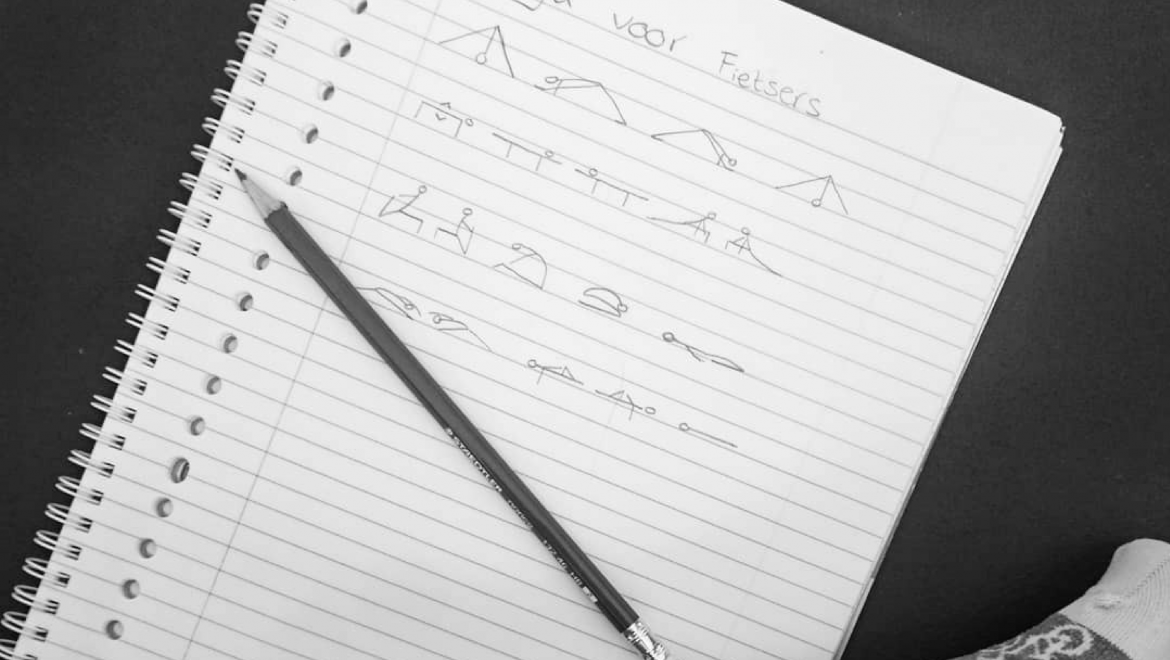 voor Fietsers
STAEDTLER